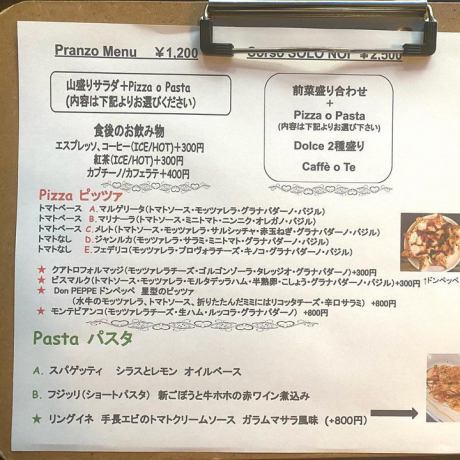 Pranzo Menu ¥1,200
Corso SOLO NOI ¥2,500
山盛りサラダ+Pizza o Pasta
(内容は下記よりお選びください)
食後のお飲み物
エスプレッソ、コーヒー(ICE/HOT)+300円
紅茶(ICE/HOT)+300円
カプチーノ/カフェラテ+400円
前菜盛り合わせ
+
Pizza o Pasta
(内容は下記よりお選び下さい)
Dolce 2種盛り
Caffè o Te
Pizza ピッツァ
トマトベース A.マルゲリータ(トマトソース・モッツァレラ・グラナパダーノ・バジル)
トマトベース B.マリナーラ(トマトソース・ミニトマト・ニンニク・オレガノ・バジル)
トマトベース C.メレト(トマトソース・モッツァレラ・サルシッチャ・赤玉ねぎ・グラナパダーノ・バジル)
トマトなし D.ジャンルカ(モッツァレラ・サラミ・ミニトマト・グラナパダーノ・バジル)
トマトなし E.フェデリコ(モッツァレラ・プロヴォラチーズ・キノコ・グラナパダーノ・バジル)
★ クアトロフォルマッジ(モッツァレラチーズ・ゴルゴンゾーラ・タレッジオ・グラナパダーノ)+300円
★ ビスマルク(トマトソース・モッツァレラ・モルタデッラハム・半熟卵・こしょう・グラナパダーノ・バジル)+300円
↑ドンペッペ
★ Don PEPPE ドンペッペ 星型のピッツァ
(水牛のモッツァレラ、トマトソース、折りたたんだミミにはリコッタチーズ・辛口サラミ) +800円
★ モンテビアンコ(モッツァレラチーズ・生ハム・ルッコラ・グラナパダーノ) +800円
Pasta パスタ
A. スパゲッティ シラスとレモン オイルベース
B. フジッリ(ショートパスタ) 新ごぼうと牛ホホの赤ワイン煮込み
★ リングイネ 手長エビのトマトクリームソース ガラムマサラ風味 (+800円)